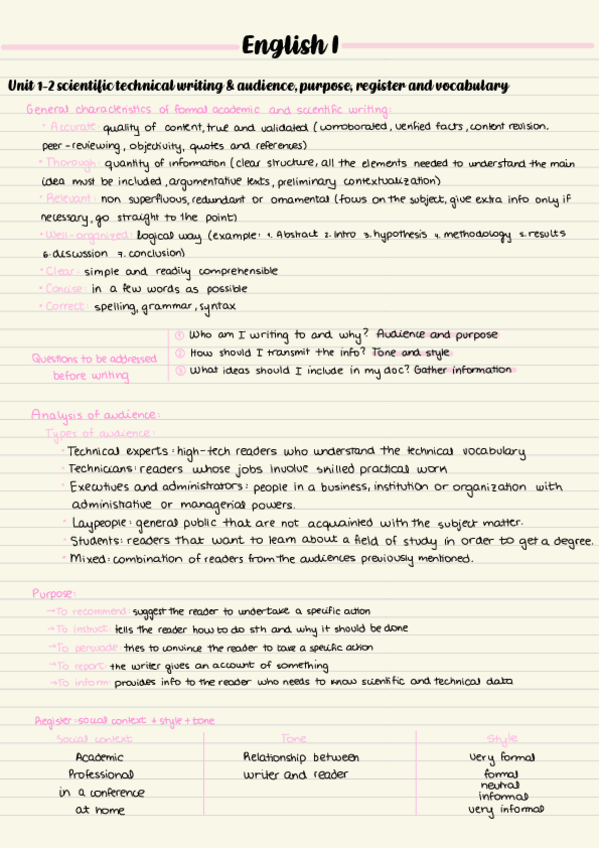 English 1
Unit 1-2 scientific technical writing & audience, purpose, register and vocabulary
General characteristics of formal academic and scientific writing:
• Accurate: quality of content, true and validated (corroborated, verified facts, content revision,
peer-reviewing, objectivity, quotes and references)
• Thorough: quantity of information (clear structure, all the elements needed to understand the main
idea must be included, argumentative texts, preliminary contextualization)
• Relevant: non superfluous, redundant or ornamental (focus on the subject, give extra info only if
necessary, go straight to the point)
• Well-organized: logical way (example: 1. Abstract 2. Intro 3. hypothesis 4. methodology 5. results
6. discussion 7. conclusion)
• Clear: simple and readily comprehensible
• Concise: in a few words as possible
• Correct: spelling, grammar, syntax
Questions to be addressed
before writing
① Who am I writing to and why? Audience and purpose
② How should I transmit the info? Tone and style
③ What ideas should I include in my doc? Gather information
Analysis of audience:
Types of audience:
• Technical experts: high-tech readers who understand the technical vocabulary
• Technicians: readers whose jobs involve skilled practical work
• Executives and administrators: people in a business, institution or organization with
administrative or managerial powers.
• Laypeople: general public that are not acquainted with the subject matter.
• Students: readers that want to learn about a field of study in order to get a degree.
• Mixed: combination of readers from the audiences previously mentioned.
Purpose:
→To recommend: suggest the reader to undertake a specific action
→To instruct: tells the reader how to do sth and why it should be done
→To persuade: tries to convince the reader to take a specific action
→To report: the writer gives an account of something
→To inform: provides info to the reader who needs to know scientific and technical data
Register: social context + style + tone
Social context Tone Style
Academic Relationship between very formal
Professional writer and reader formal
neutral
in a conference informal
at home very informal